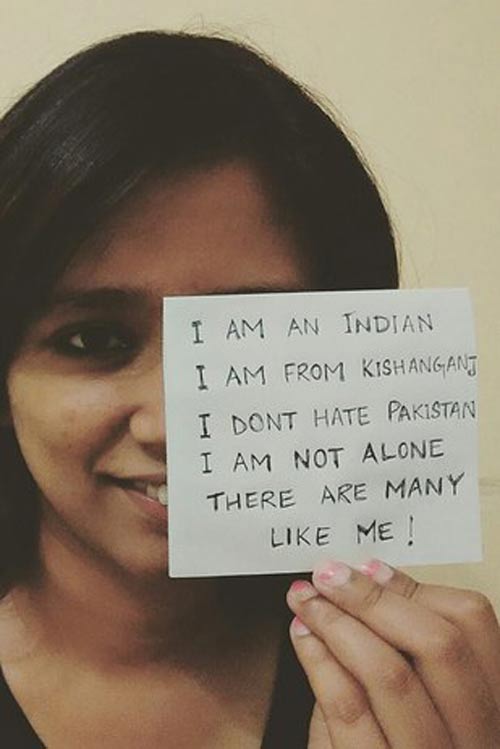 I AM AN INDIAN
I AM FROM KISHANGANJ
I DONT HATE PAKISTAN
I AM NOT ALONE
THERE ARE MANY
LIKE ME!